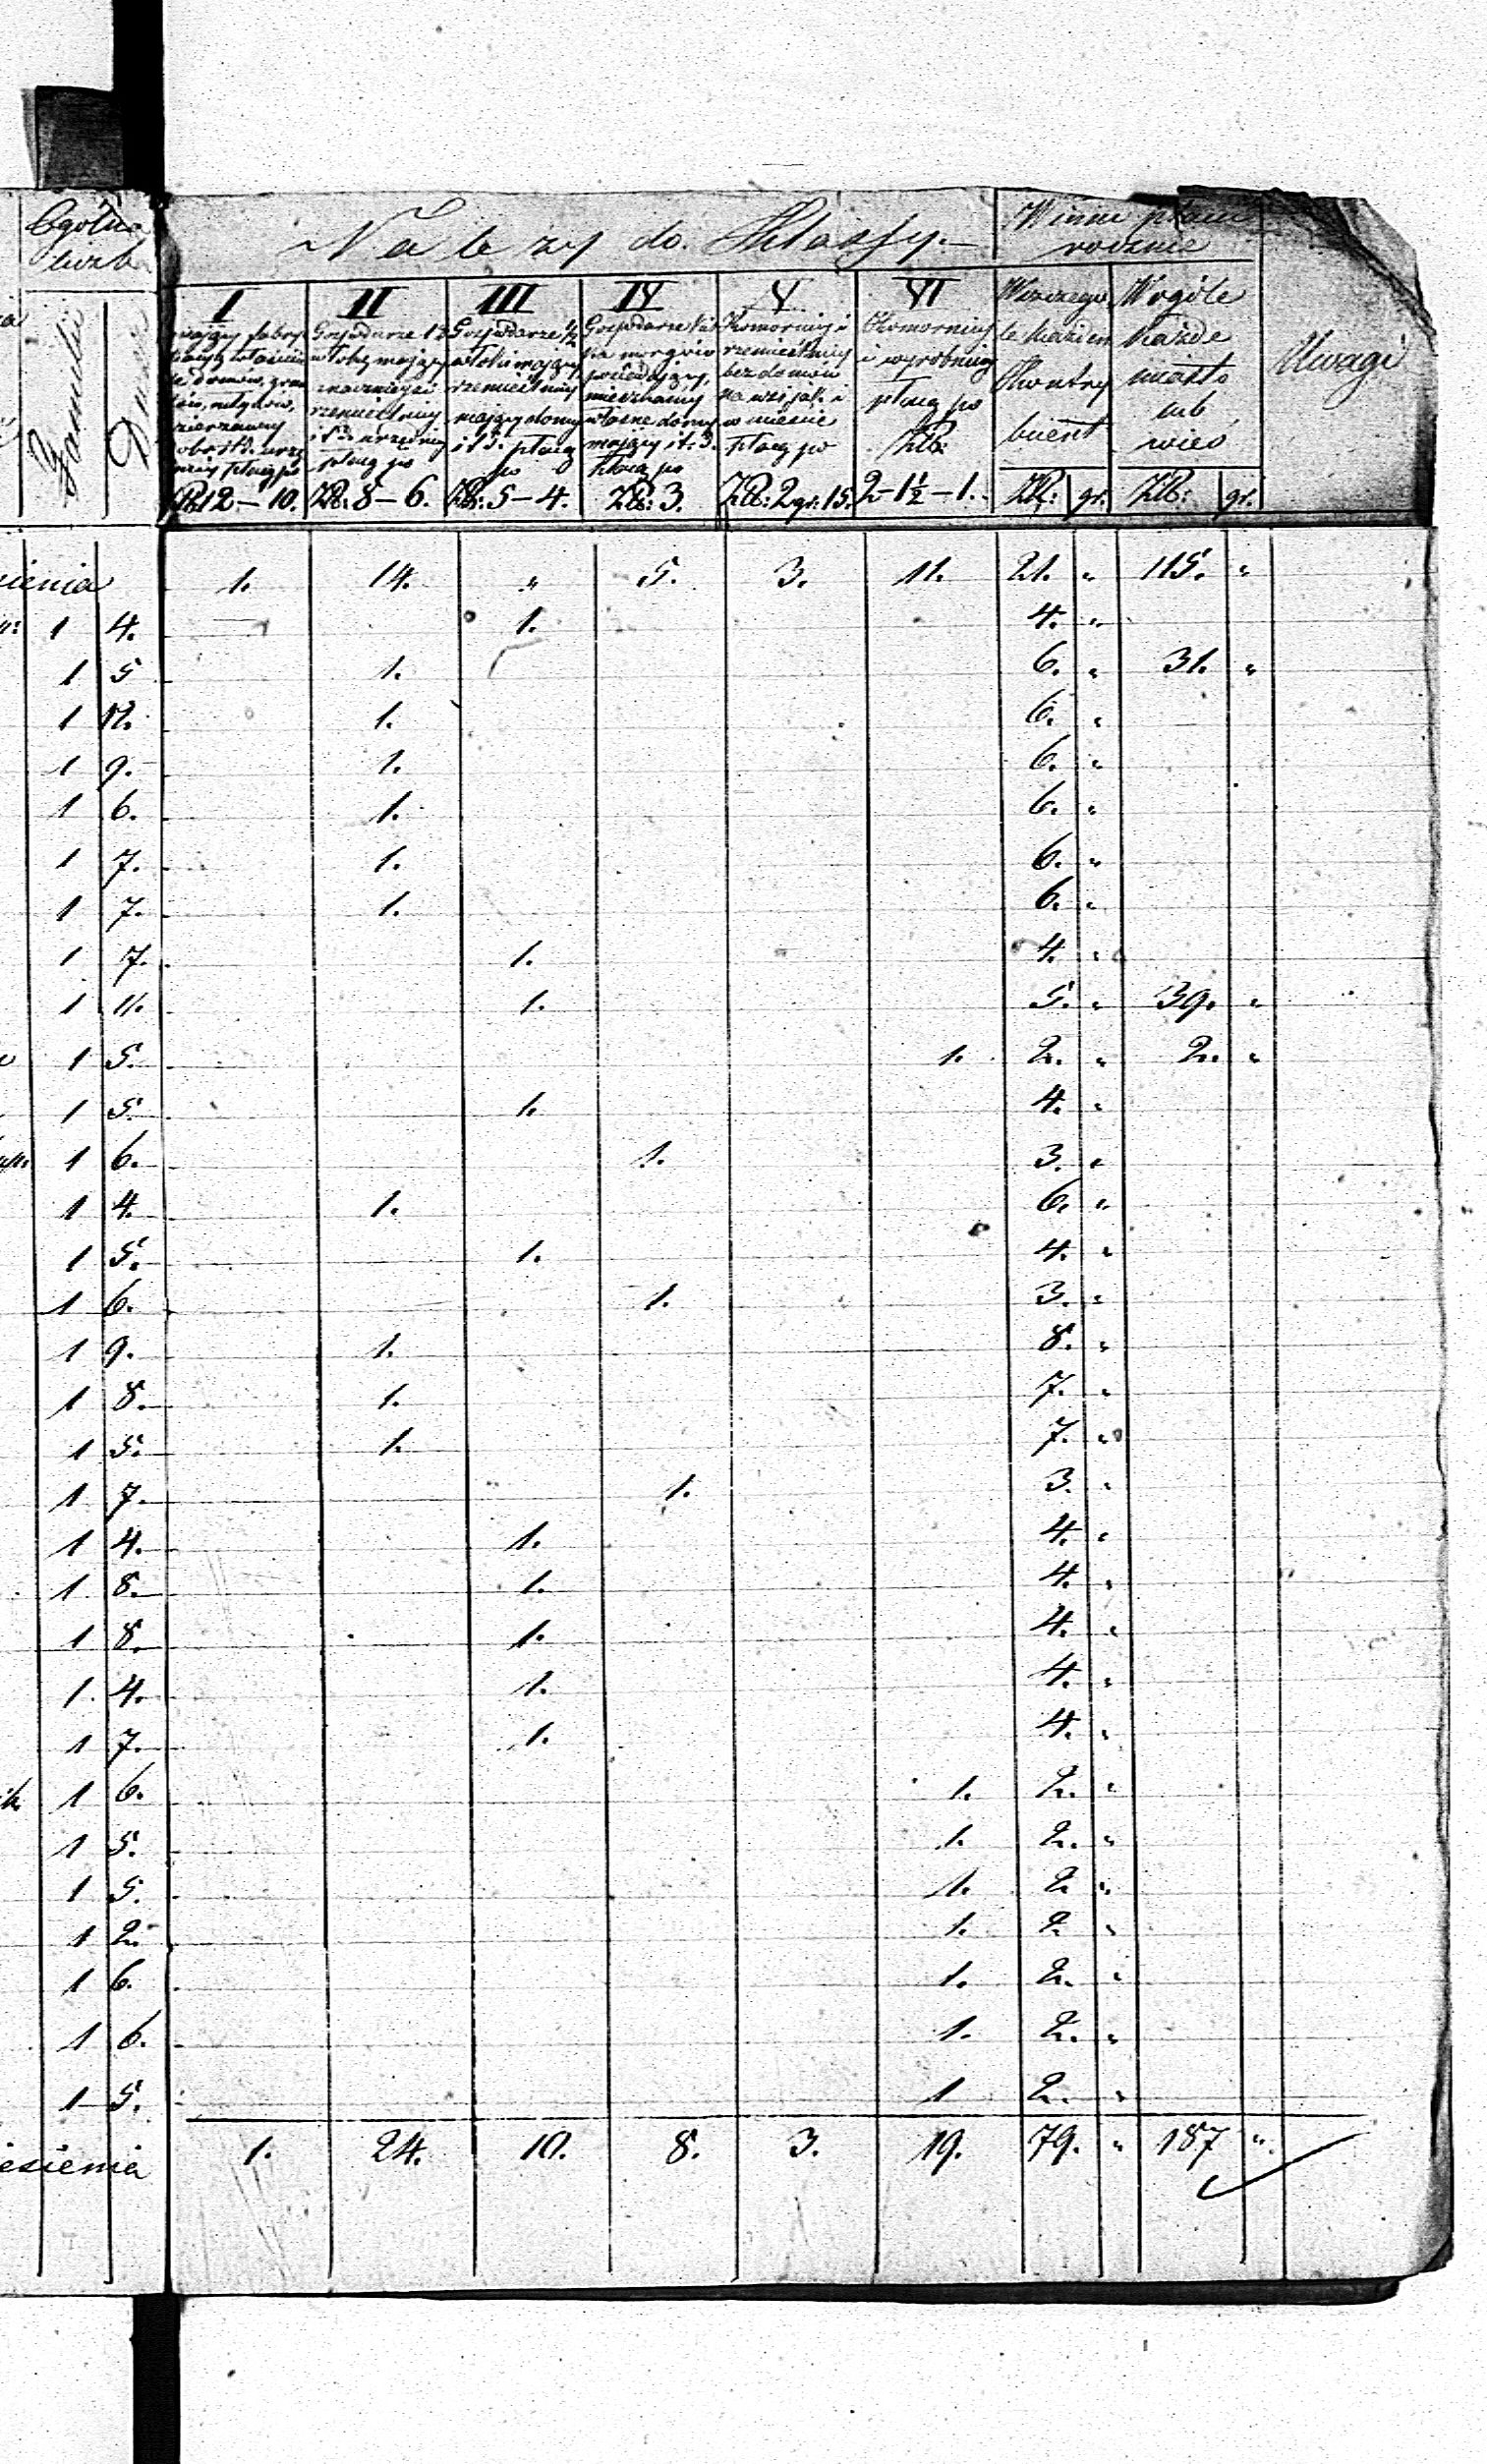 Ogólna Należy do Klassy. Winni płacić
liczba rocznie
I II III IV V VI Wszczegó Wogóle
Gospodarze 1/2 Gospodarze Komornicy i Komornicy każde Uwagi
włoki mający morgów rzemieślnicy i wyrobnicy miasto
rzemieślnicy posiadający, bez domów płacą po lub
mający domy mieszkańcy na wsi jak i Złp. wieś
i t.d. płacą własne domy w mieście
po mający i t.d. płacą po
Familii płacą po
12.–10. Złp: 8–6. Złp: 5–4. Złp: 3. Złp: 2 gr: 15. 2–1½–1. Złp: gr. Złp: gr.
sienia 1. 14. " 5. 3. 11. 21. " 115. "
1 4. 1. 4. "
1 5 1. 6. " 31. "
1 12. 1. 6. "
1 9. 1. 6. "
1 6. 1. 6. "
1 7. 1. 6. "
1 7. 1. 6. "
1 7. 1. 4. "
1 11. 1. 5. " 39. "
1 5. 1. 2. " 2. "
1 5. 1. 4. "
1 6. 1. 3. "
1 4. 1. 6. "
1 5. 1. 4. "
1 6. 1. 3. "
1 9. 1. 8. "
1 8. 1. 7. "
1 5. 1. 7. "
1 7. 1. 3. "
1 4. 1. 4. "
1 8. 1. 4. "
1 8. 1. 4. "
1. 4. 1. 4. "
1 7. 1. 4. "
1 6. 1. 2. "
1 5. 1. 2. "
1 5. 1. 2 "
1 2. 1. 2 "
1 6. 1. 2. "
1 6. 1. 2. "
1 5. 1 2. "
esienia 1. 24. 10. 8. 3. 19. 79. " 187 "